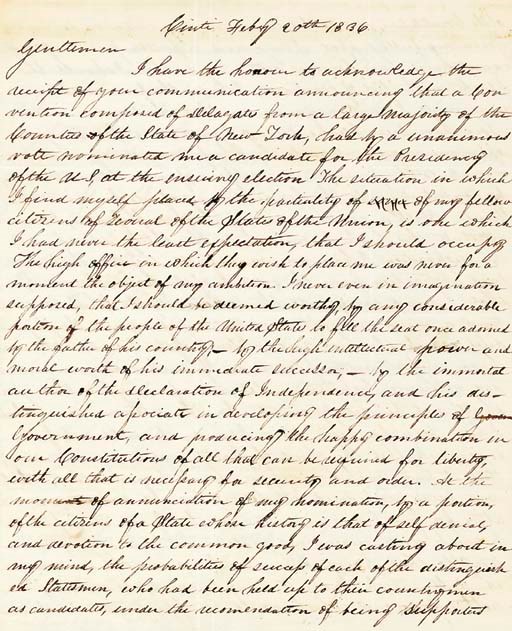 Cinti Feby 20th 1836
Gentlemen
I have the honour to acknowledge the
receipt of your communication announcing that a Con
vention composed of Delegates from a large Majority of the
Counties of the State of New York, had by a unanimous
vote nominated me a candidate for the Presidency
of the U S, at the ensuing election The situation in which
I find myself placed by the partiality of of my fellow
citizens of several of the States of the Union, is one which
I had never the least expectation, that I should occupy
The high office in which they wish to place me was never for a
moment the object of my ambition. I never even in imagination
supposed, that I should be deemed worthy, by any considerable
portion of the people of the United States to fill the seat once adorned
by the father of his country; – by the high intellectual power and
moral worth of his immediate successor; – by the immortal
author of the Declaration of Independence, and his dis-
tinguished associate in developing the principles of Govern
Government, and producing the happy combination in
our Constitutions of all that can be required for liberty,
with all that is necessary for security and order. At the
moment of annunciation of my nomination, by a portion,
of the citizens of a State whose history is that of self denial,
and devotion to the common good, I was casting about in
my mind, the probabilities of success of each of the distinguish
ed Statesmen, who had been held up to their countrymen
as candidates, under the recomendation of being supporters